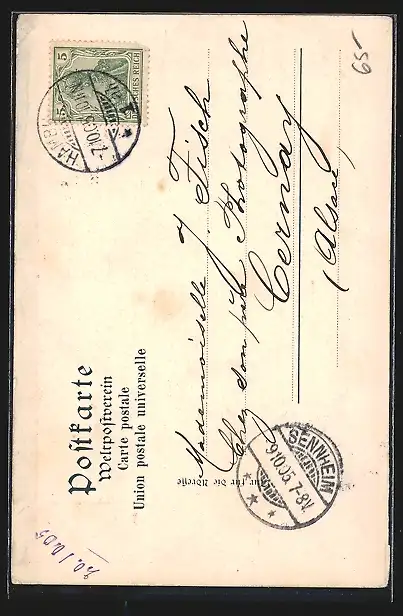 Postkarte
Weltpostverein
Carte postale
Union postale universelle
5
DEUTSCHES REICH
5
HAMBURG
-7.10.05
1
Mademoiselle J. Fisch
Chez son père Photographe
Cernay
(Alsace)
Nur für die Adresse
SENNHEIM
9.10.05. 7-8V.
65-